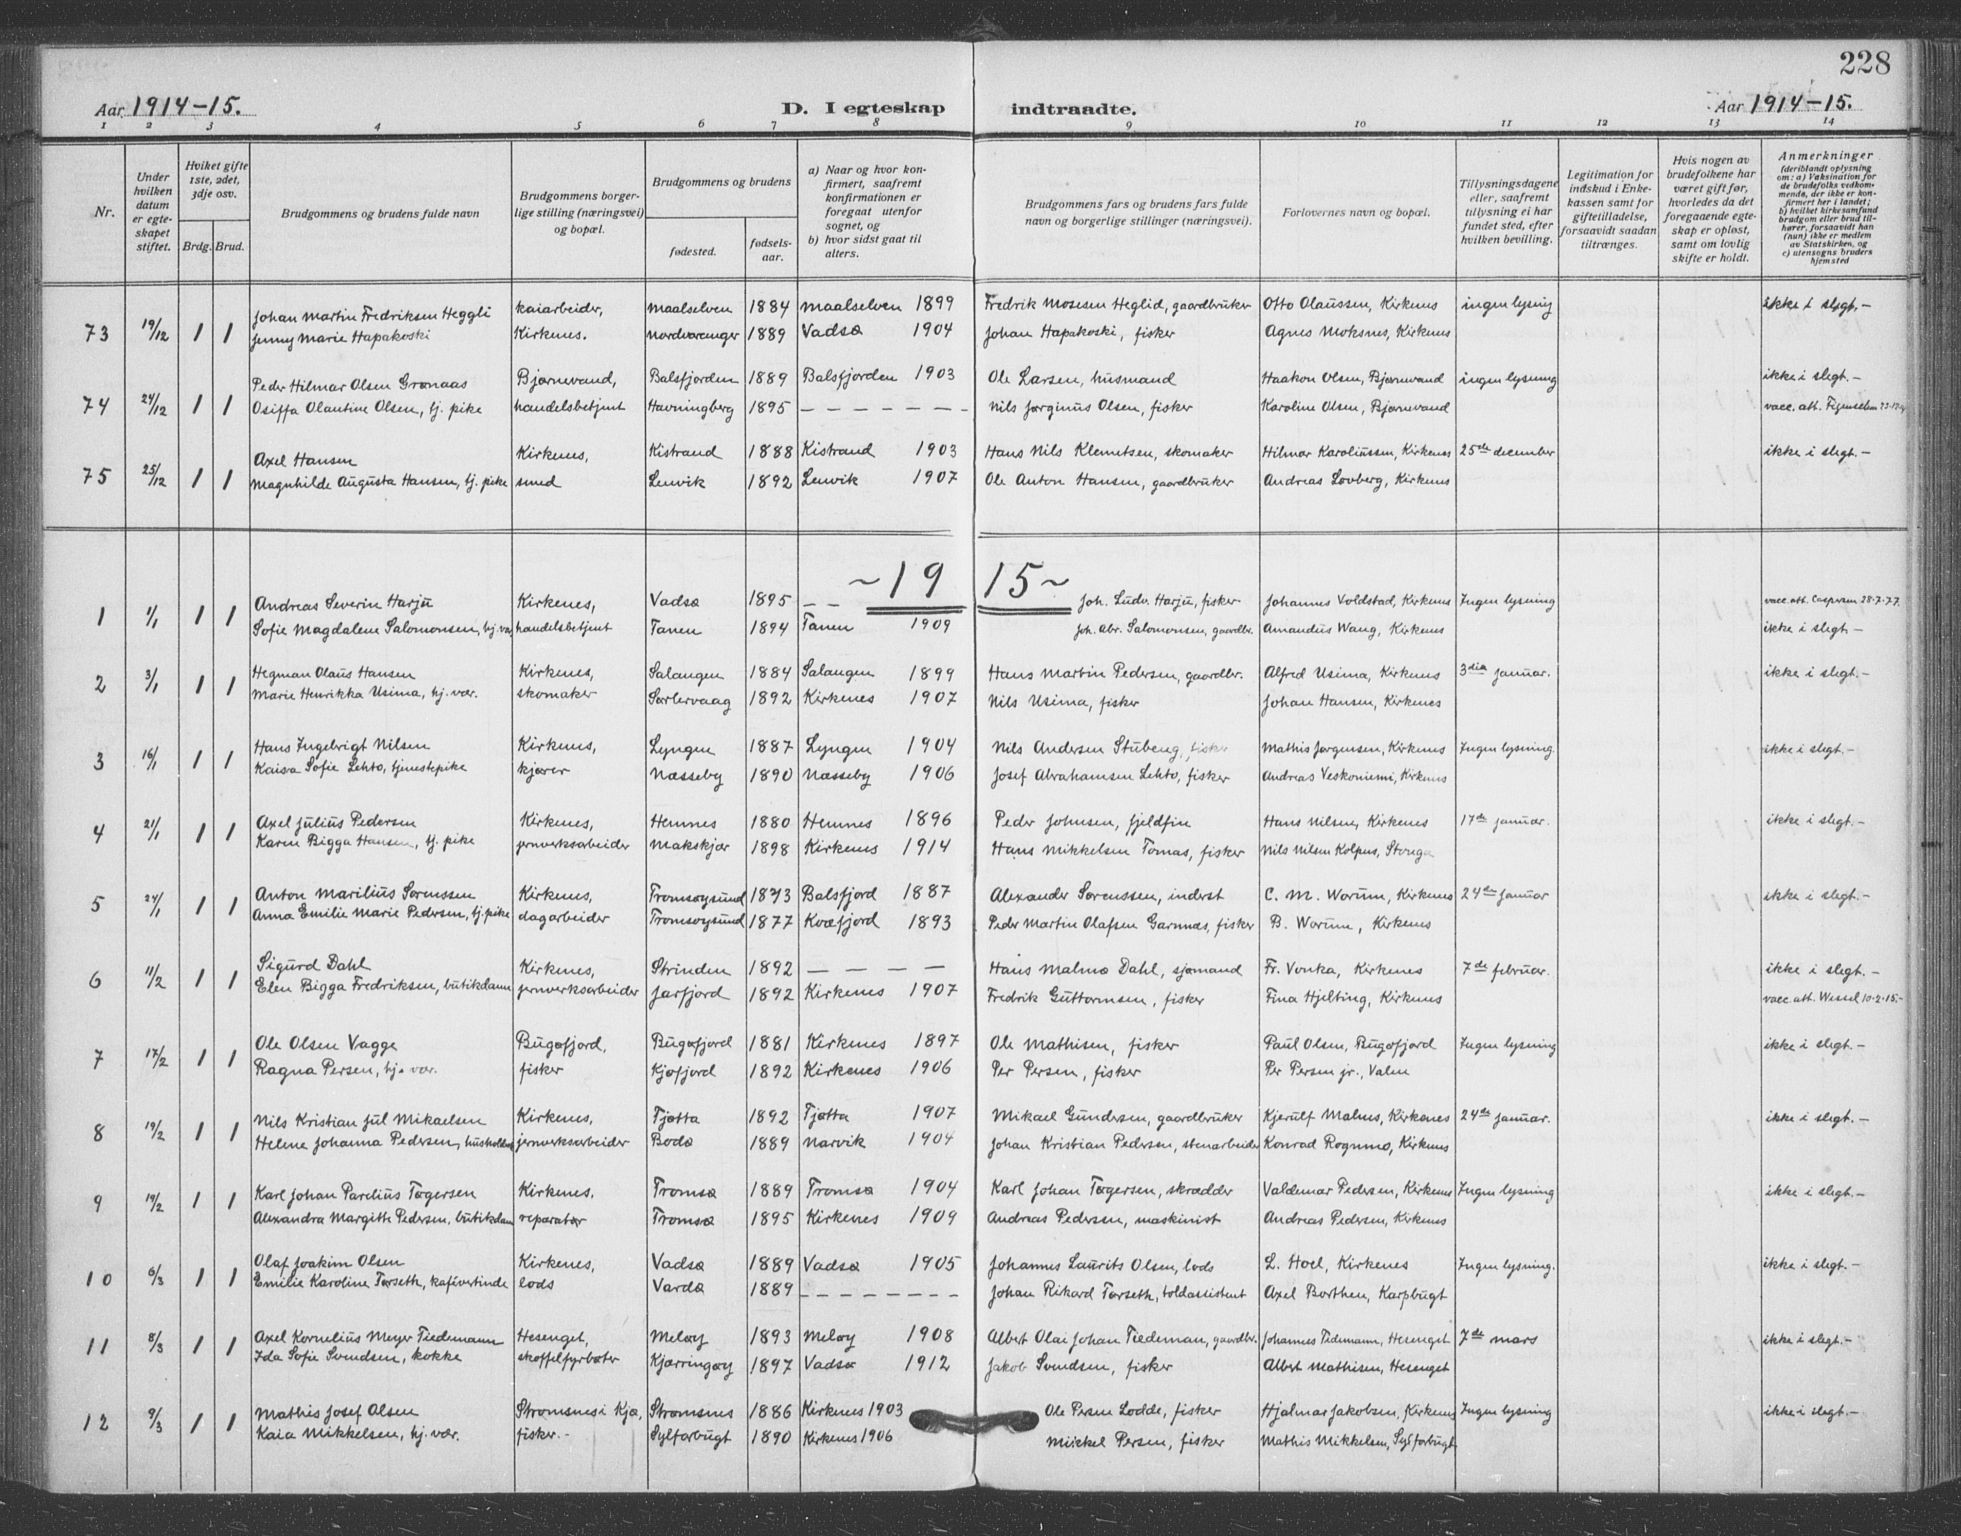 228
Aar 1914-15. D. I egteskap indtraadte. Aar 1914-15.
1 2 3 4 5 6 7 8 9 10 11 12 13 14
Nr.
Under hvilken datum er egteskapet stiftet.
Hviket gifte 1ste, 2det, 3dje osv.
Brdg. Brud.
Brudgommens og brudens fulde navn
Brudgommens borgerlige stilling (næringsvei) og bopæl.
Brudgommens og brudens
fødested. fødselsaar.
a) Naar og hvor konfirmert, saafremt konfirmationen er foregaat utenfor sognet, og
b) hvor sidst gaat til alters.
Brudgommens fars og brudens fars fulde navn og borgerlige stillinger (næringsvei).
Forlovernes navn og bopæl.
Tillysningsdagene eller, saafremt tillysning ei har fundet sted, efter hvilken bevilling.
Legitimation for indskud i Enkekassen samt for giftetilladelse, forsaavidt saadan tiltrænges.
Hvis nogen av brudefolkene har været gift før, hvorledes da det foregaaende egteskap er opløst, samt om lovlig skifte er holdt.
Anmerkninger (deriblandt oplysning om: a) Vaksination for de brudefolks vedkommende, der ikke er konfirmert her i landet; b) hvilket kirkesamfund brudgom eller brud tilhører, forsaavidt han (hun) ikke er medlem av Statskirken, og c) utensogns bruders hjemsted
73 19/12 1 1 Johan Martin Fredriksen Heggli kaiarbeider, Maalselven 1884 Maalselven 1899 Fredrik Mosesen Heglid, gaardbruker Otto Olaussen, Kirkenes ingen lysning ikke i slegt.-
Jenny Marie Hapakoski Kirkenes. Nordvaranger 1889 Vadsø 1904 Johan Hapakoski, fisker Agnes Moksnes, Kirkenes
74 24/12 1 1 Peder Hilmar Olsen Grønaas Bjørnevand, Balsfjorden 1889 Balsfjorden 1903 Ole Larsen, husmand Haakon Olsen, Bjørnevand ingen lysning ikke i slegt.-
Osiffa Olautine Olsen, tj. pike handelsbetjent Havningberg 1895 - - - - - - - Nils Jørginus Olsen, fisker Karoline Olsen, Bjørnevand vacc. att.
75 25/12 1 1 Axel Hansen Kirkenes, Kistrand 1888 Kistrand 1903 Hans Nils Klemetsen, skomaker Hilmar Karoliussen, Kirkenes 25de december ikke i slegt.-
Magnhilde Augusta Hansen, tj. pike smed Lenvik 1892 Lenvik 1907 Ole Anton Hansen, gaardbruker Andreas Lovberg, Kirkenes
~19 15~
1 1/1 1 1 Andreas Severin Harju Kirkenes, Vadsø 1895 - - Joh. Ludv. Harju, fisker Johannes Voldstad, Kirkenes Ingen lysning vacc. att.
Sofie Magdalene Salomonsen, hj. væ handelsbetjent Tanen 1894 Tanen 1909 Joh. Abr. Salomonsen, gaardbr. Amandus Wang, Kirkenes ikke i slegt.-
2 3/1 1 1 Hegman Olaus Hansen Kirkenes, Salangen 1884 Salangen 1899 Hans Martin Pedersen, gaardbr. Alfred Usima, Kirkenes 3dia januar. ikke i slegt.-
Marie Henrikka Usima, hj. vær. skomaker Sørlervaag 1892 Kirkenes 1907 Nils Usima, fisker Johan Hansen, Kirkenes
3 16/1 1 1 Hans Ingebrigt Nilsen Kirkenes, Lyngen 1887 Lyngen 1904 Nils Andersen Stubeng, fisker Mathis Jørgensen, Kirkenes Ingen lysning. ikke i slegt.-
Kaisa Sofie Lehto, tjenestepike kjører Næsseby 1890 Næsseby 1906 Josef Abrahamsen Lehto, fisker Andreas Veskoniemi, Kirkenes
4 21/1 1 1 Axel Julius Pedersen Kirkenes, Hemnes 1880 Hemnes 1896 Peder Johnsen, fjeldfin Hans Nilsen, Kirkenes 17de januar. ikke i slegt.-
Karen Bigga Hansen, tj. pike jernverksarbeider Makskjær 1898 Kirkenes 1914 Hans Mikkelsen Tomas, fisker Nils Nilsen Kolpus,
5 24/1 1 1 Anton Marilius Sørenssen Kirkenes, Tromsøysund 1873 Balsfjord 1887 Alexander Sørenssen, inderst C. M. Worum, Kirkenes 24de januar ikke i slegt.-
Anna Emilie Marie Pedersen, tj. pike dagarbeider Tromsøysund 1877 Kvæfjord 1893 Peder Martin Olafsen Garnnes, fisker B. Worum, Kirkenes
6 11/2 1 1 Sigurd Dahl Kirkenes, Strinden 1892 - - - - Hans Malmø Dahl, sjømand Fr. Vonka, Kirkenes 7de februar. ikke i slegt.-
Elen Bigga Fredriksen, butikdame jernverksarbeider Jarfjord 1892 Kirkenes 1907 Fredrik Guttormsen, fisker Fina Hjelting, Kirkenes vacc. att. Wessel 10-2-15.-
7 17/2 1 1 Ole Olsen Vagge Bugøfjord, Bugøfjord 1881 Kirkenes 1897 Ole Mathisen, fisker Paul Olsen, Bugøfjord Ingen lysning ikke i slegt.-
Ragna Persen, hj. vær. fisker Kjøfjord 1892 Kirkenes 1906 Per Persen, fisker Per Persen jr., Valen
8 19/2 1 1 Nils Kristian Jul Mikaelsen Kirkenes, Tjøtta 1892 Tjøtta 1907 Mikael Gundersen, gaardbruker Kjerulf Malnes, Kirkenes 24de januar. ikke i slegt.-
Helene Johanna Pedersen, husholder jernverksarbeider Bodø 1889 Narvik 1904 Johan Kristian Pedersen, stenarbeider Konrad Rognmo, Kirkenes
9 19/2 1 1 Karl Johan Parelius Tøgersen Kirkenes, Tromsø 1889 Tromsø 1904 Karl Johan Tøgersen, skrædder Valdemar Pedersen, Kirkenes Ingen lysning ikke i slegt.-
Alexandra Margithe Pedersen, butikdam reparatør Tromsø 1895 Kirkenes 1909 Andreas Pedersen, maskinist Andreas Pedersen, Kirkenes
10 6/3 1 1 Olaf Joakim Olsen Kirkenes, Vadsø 1889 Vadsø 1905 Johannes Laurits Olsen, lods L. Hoel, Kirkenes Ingen lysning. ikke i slegt.-
Emilie Karoline Tørseth, kafévertinde lods Vardø 1889 - - - - - - - - Johan Rikard Tørseth, toldassistent Axel Borthen, Karpbugt
11 8/3 1 1 Axel Kornelius Meyer Tiedemann Hesenget, Meløy 1893 Meløy 1908 Albert Olai Johan Tiedeman, gaardbr. Johannes Tidemann, Hesenget 7de mars ikke i slegt.-
Ida Sofie Svendsen, kokke skoffelfyrbøter Kjærringøy 1897 Vadsø 1912 Jakob Svendsen, fisker Albert Mathisen, Hesenget
12 9/3 1 1 Mathis Josef Olsen Strømsnes i Kjø, Strømsnes 1886 Kirkenes 1903 Ole Persen Lodde, fisker Hjalmar Jakobsen, Kirkenes Ingen lysning ikke i slegt.-
Kaia Mikkelsen, hj. vær. fisker.- Sylforbugt 1890 Kirkenes 1906 Mikkel Persen, fisker Mathis Mikkelsen, Sylforbugt